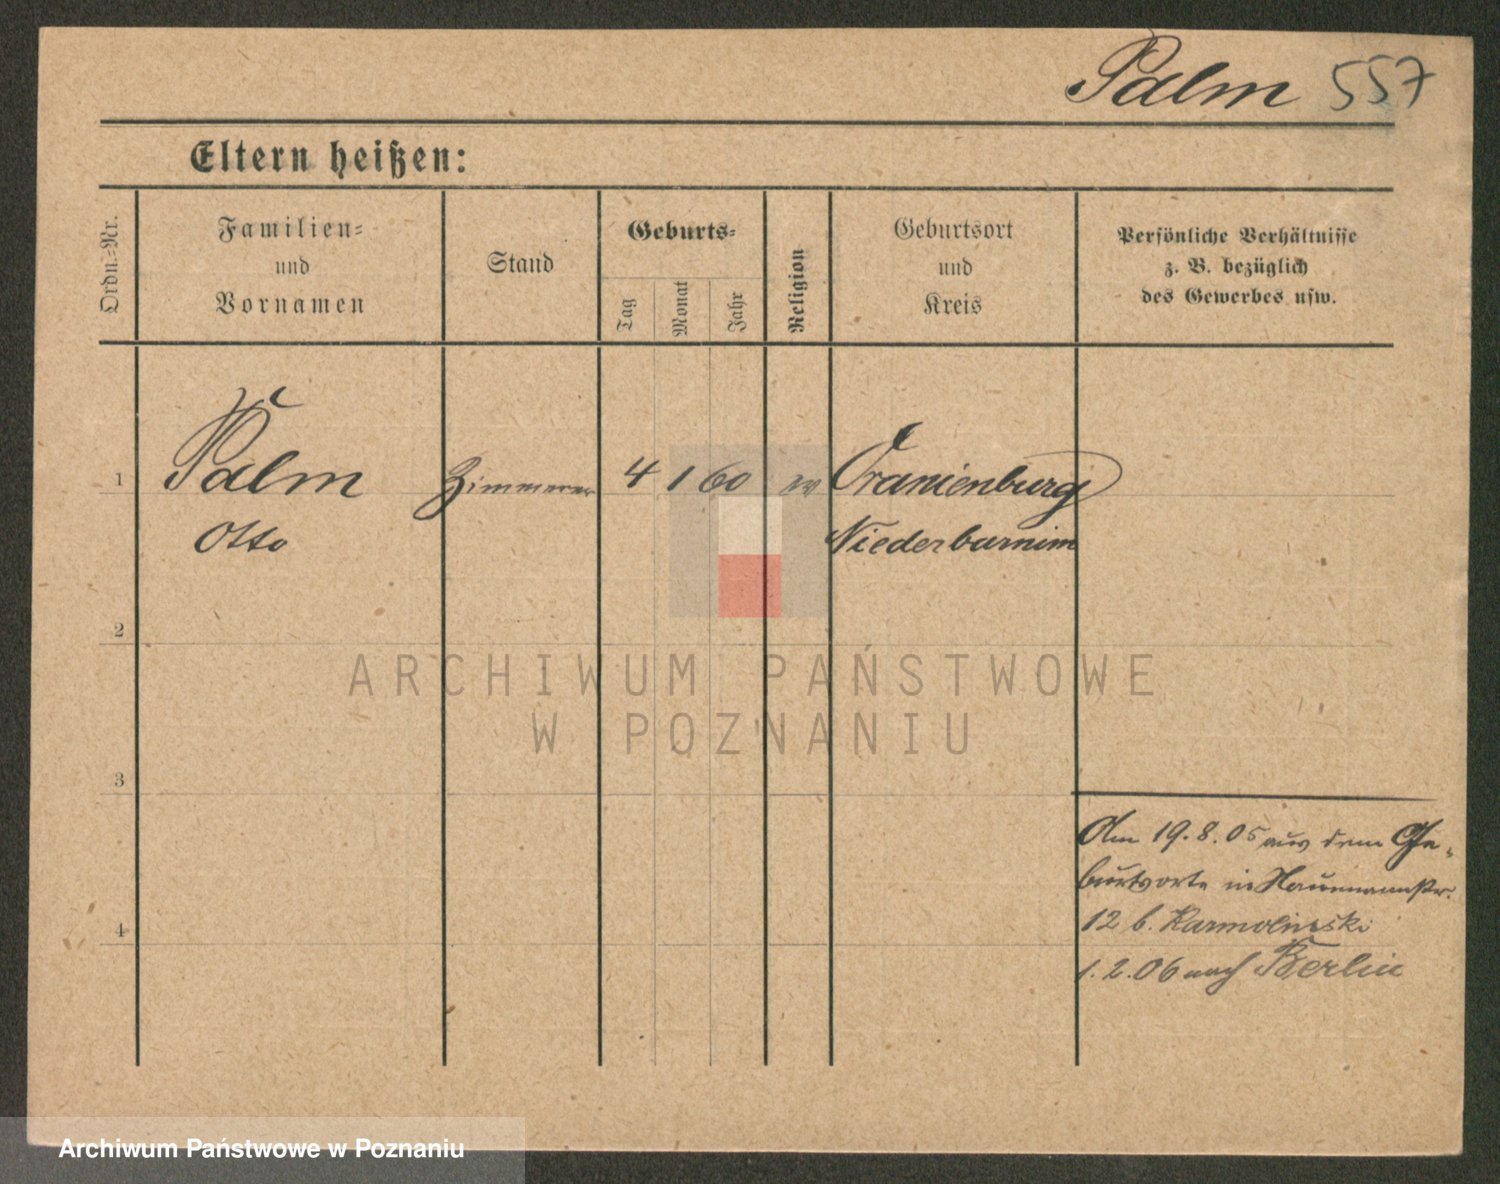 Palm 557
Eltern heißen:
Ordn.-Nr.
Familien-
und
Vornamen
Stand
Geburts-
Tag
Monat
Jahr
Religion
Geburtsort
und
Kreis
Persönliche Verhältnisse
z. B. bezüglich
des Gewerbes usw.
1
Palm
Zimmerer
4 1 60
ev
Oranienburg
Otto
Niederbarnim
2
ARCHIWUM PAŃSTWOWE
W POZNANIU
3
Am 19.8.05 aus dem Ge-
burtsorte in Naumannstr.
4
12 b. Karmolinski
1.2.06 nach Berlin
Archiwum Państwowe w Poznaniu